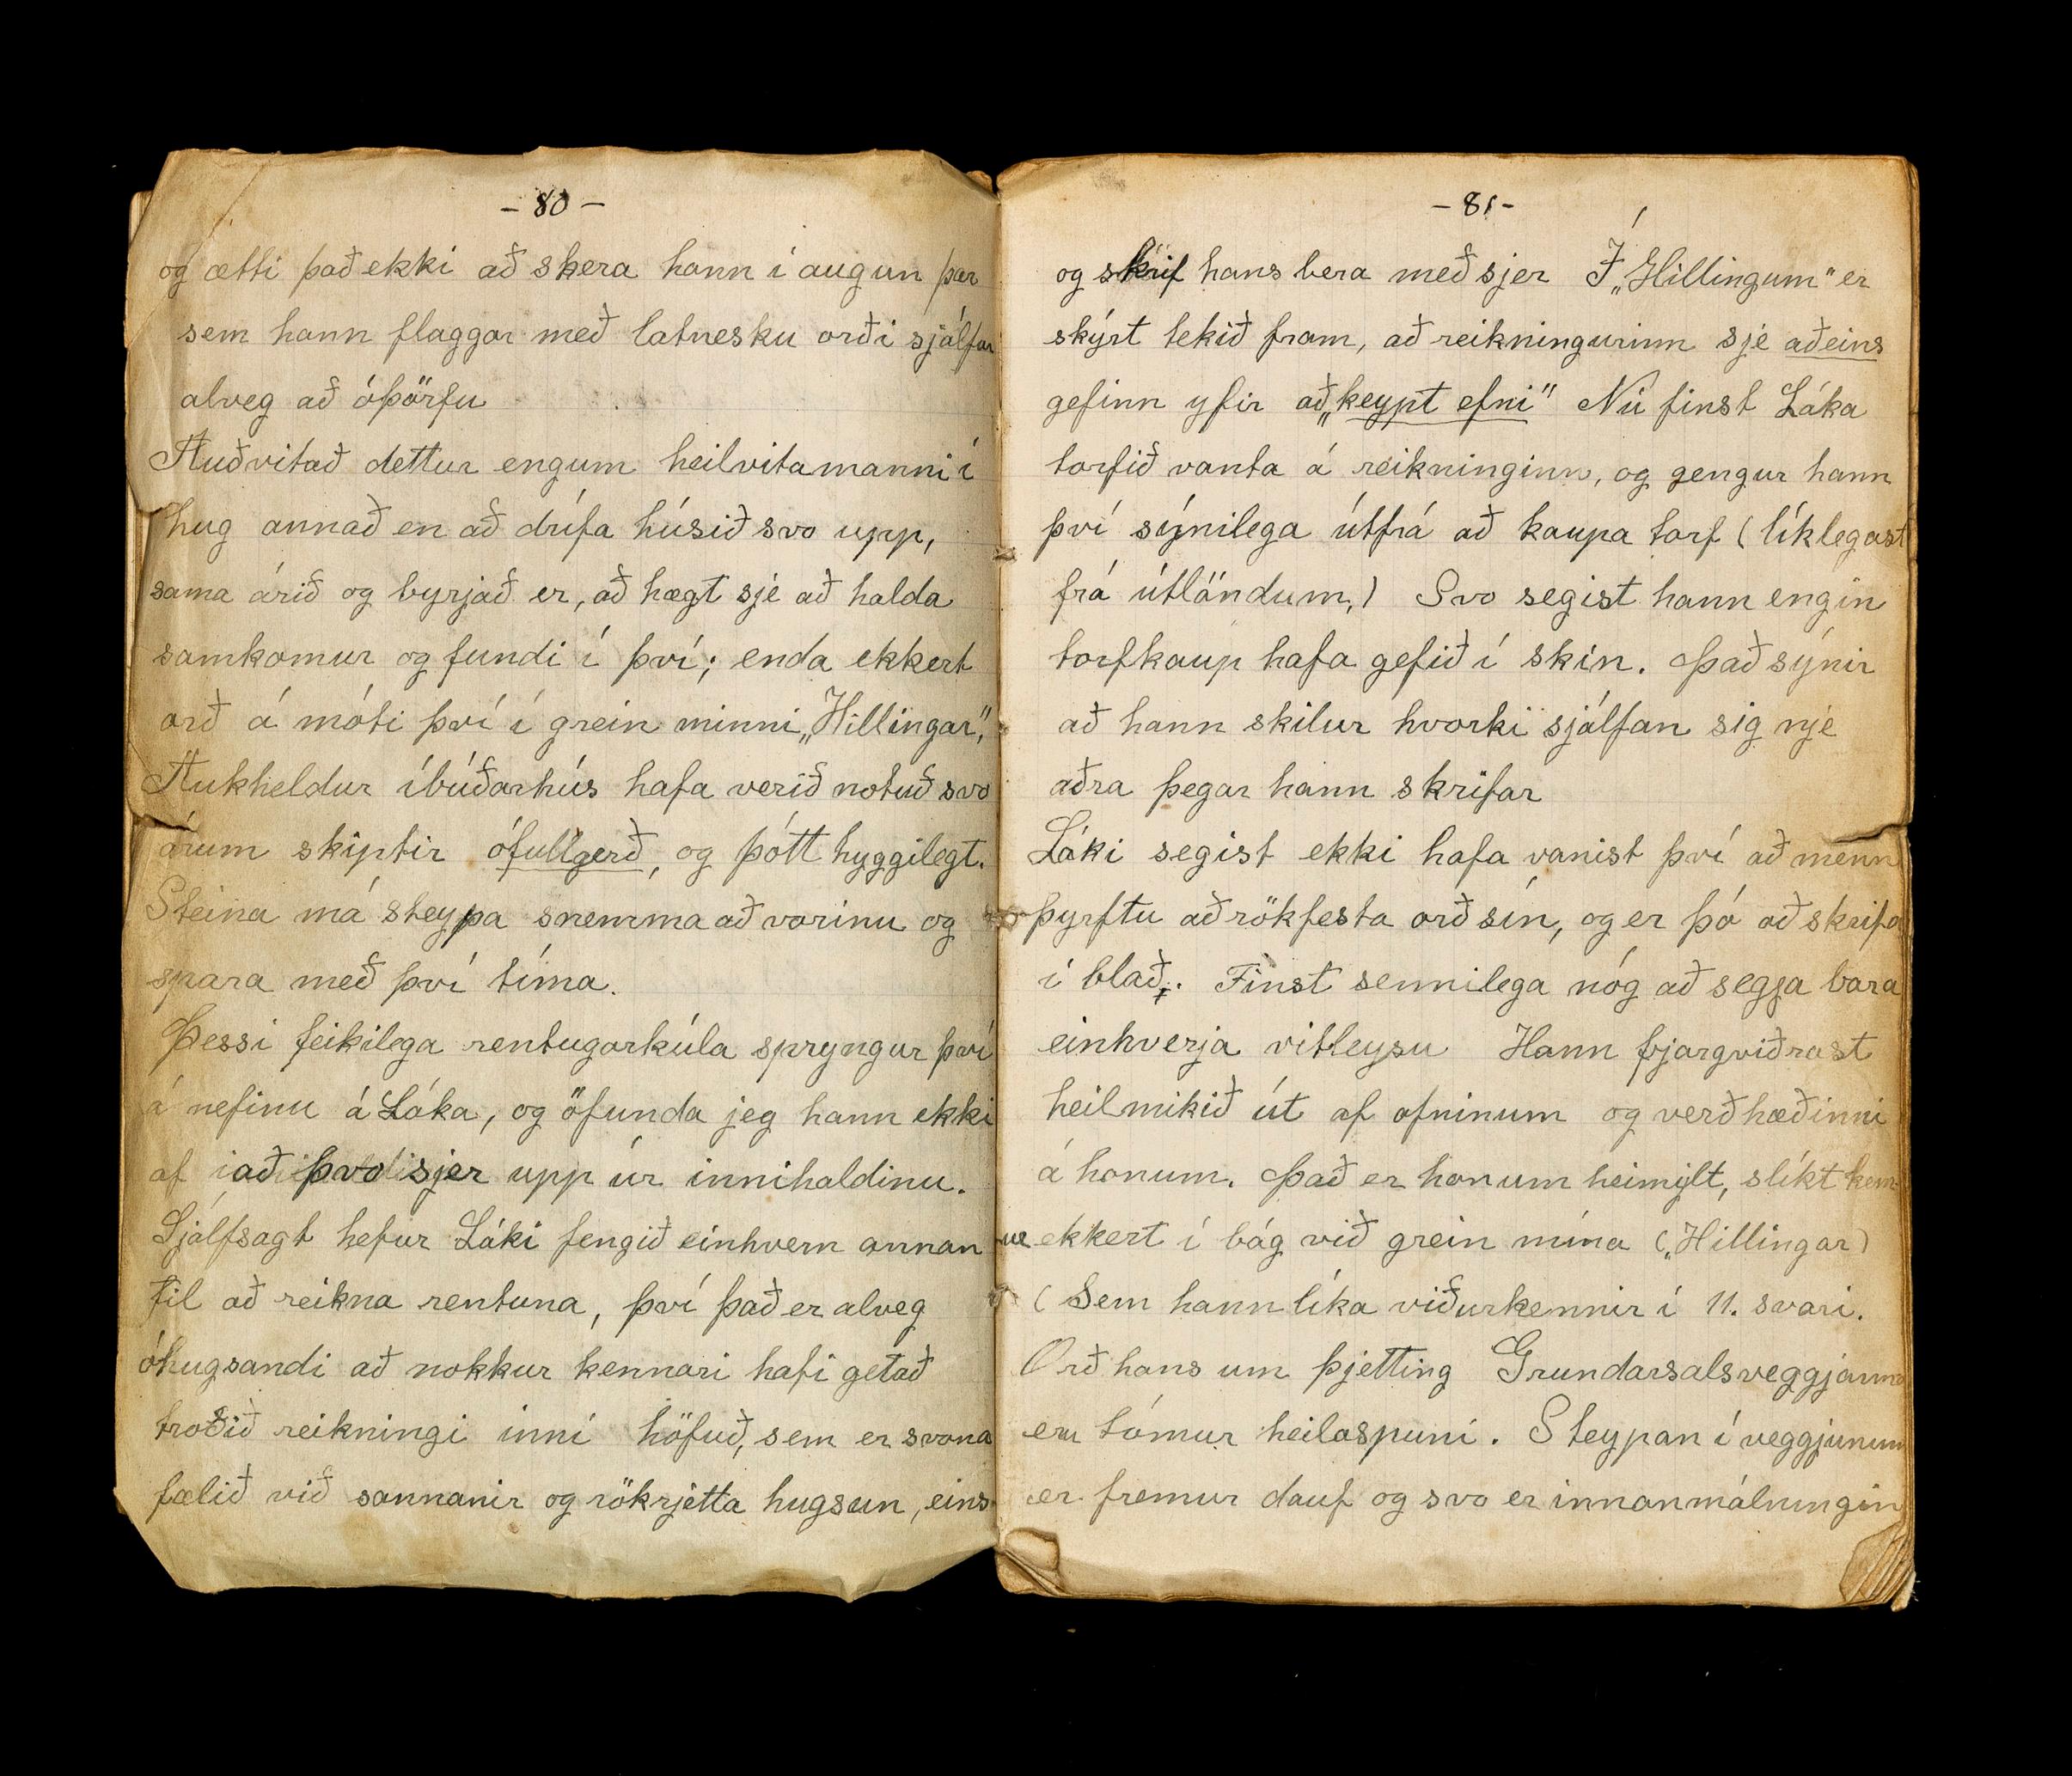 - 80 -
og ætti það ekki að skera hann í augun þar
sem hann flaggar með latnesku orði sjálfur
alveg að óþörfu
Auðvitað dettur engum heilvitamanni í
hug annað en að drífa húsið svo upp,
sama árið og byrjað er, að hægt sje að halda
samkomur og fundi í því; enda ekkert
orð á móti því í grein minni „Hillingar",
Aukheldur íbúðarhús hafa verið notuð svo
árum skiptir ófullgerð, og þótt hyggilegt.
Steina má steypa snemma að vorinu og
spara með því tíma.
Þessi feikilega rentugorkúla spryngur því
á nefinu á Láka, og öfunda jeg hann ekki
af að þvo sjer upp úr innihaldinu.
Sjálfsagt hefur Láki fengið einhvern annan
til að reikna rentuna, því það er alveg
óhugsandi að nokkur kennari hafi getað
troðið reikningi inní höfuð, sem er svona
fælið við sannanir og rökrjetta hugsun, eins
- 81 -
og skrif hans bera með sjer Í „Hillingum" er
skýrt tekið fram, að reikningurinn sje aðeins
gefinn yfir að „keypt efni" Nú finst Láka
torfið vanta á reikninginn, og gengur hann
því sýnilega útfrá að kaupa torf (líklegast
frá útlöndum,) Svo segist hann engin
torfkaup hafa gefið í skin. Það sýnir
að hann skilur hvorki sjálfan sig nje
aðra þegar hann skrifar
Láki segist ekki hafa vanist því að menn
þyrftu að rökfesta orð sín, og er þó að skrifa
í blað. Finst sennilega nóg að segja bara
einhverja vitleysu Hann fjargviðrast
heilmikið út af ofninum og verðhæðinni
á honum. Það er honum heimilt, slíkt kem-
ur ekkert í bág við grein mína („Hillingar)
(Sem hann líka viðurkennir í 11. svari.
Orð hans um þjetting Grundarsalsveggjanna
eru tómur heilaspuni. Steypan í veggjunum
er fremur dauf og svo er innanmálningin